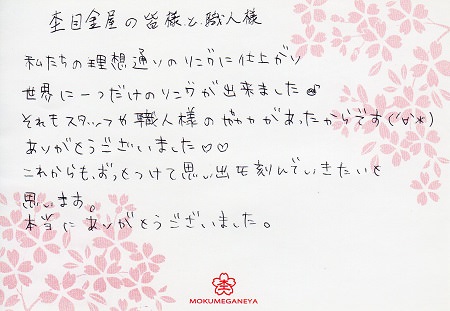 杢目金屋の皆様と職人様
私たちの理想通りのリングに仕上がり
世界に一つだけのリングが出来ました♪
それもスタッフや職人様のがあったからです(^∀^*)
ありがとうございました♡♡
これからも、ずっとつけて思い出を刻んでいきたいと
思います。
本当にありがとうございました。
MOKUMEGANEYA